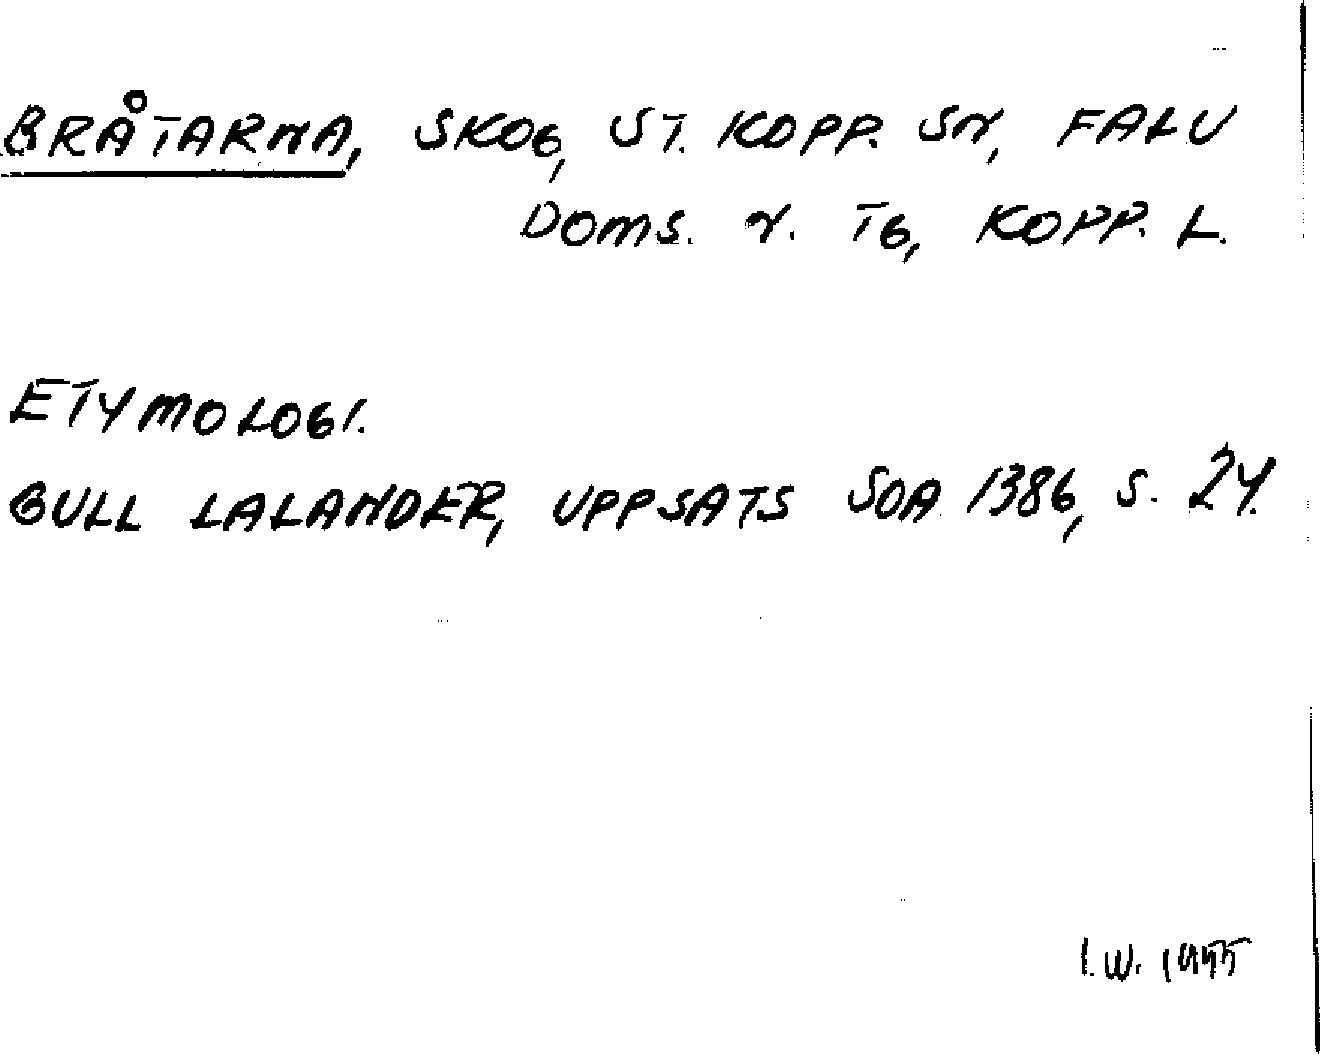 BRÅTARNA, SKOG, ST. KOPP. SN, FALU
DOMS. N. TG, KOPP. L.
ETYMOLOGI.
GULL LALANDER, UPPSATS SOA 1386, S. 24.
I.W. 1955